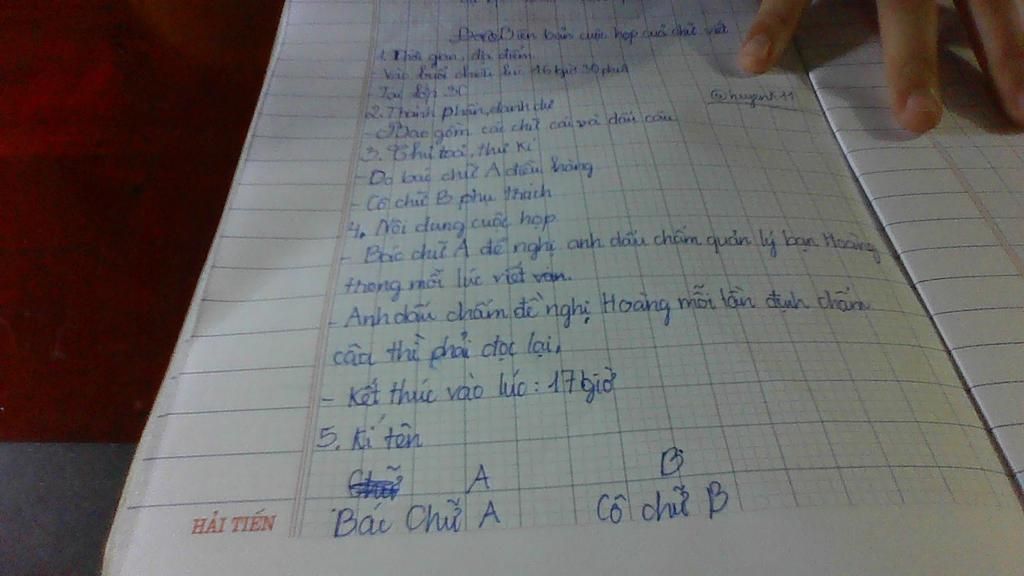 Biên bản cuộc họp của chữ viết
1. Thời gian, địa điểm
- Vào buổi chiều lúc 16 giờ 30 phút
Tại lớp 3C
@huyenk11
2. Thành phần, danh
- Bao gồm cái chữ cái và dấu câu
3. Chủ toạ, thư kí
- Do bác chữ A điều hàng
- Cô chữ B phụ trách
4. Nôi dung cuộc họp
- Bác chữ A đề nghị anh dấu chấm quản lý bạn Hoàng
trong mỗi lúc viết văn.
- Anh dấu chấm đề nghị Hoàng mỗi lần định chấm
câu thì phải đọc lại.
- Kết thúc vào lúc: 17 giờ
5. Kí tên
A B
Bác Chữ A Cô chữ B
HẢI TIẾN